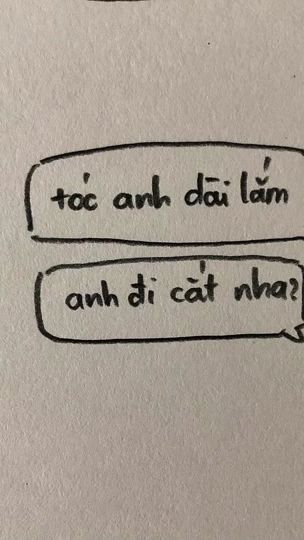 tóc anh dài lắm
anh đi cắt nha?